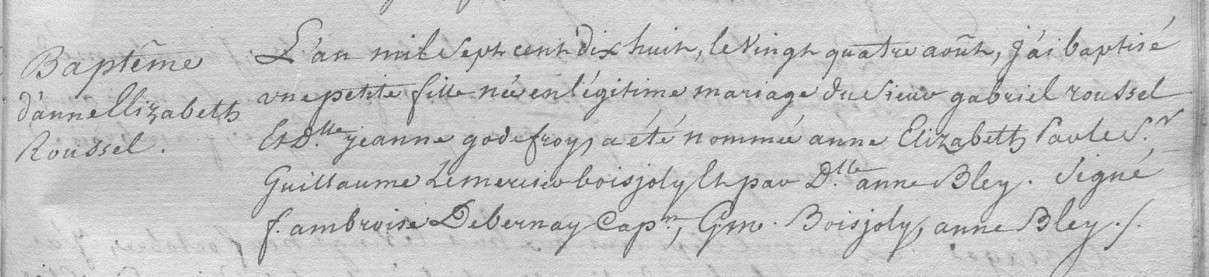 Baptême
d'anne Elizabeth
Roussel.
L'an mil Sept cent Dix huit, le Vingt quatre août, j'ai baptisé
une petite fille née en légitime mariage du Sieur gabriel roussel
Et D.lle jeanne godefroy, a été nommée anne Elizabeth Par le S.r
Guillaume Lemercier boisjoly Et par D.lle anne Bley. Signé
f. ambroise Debernay Cap.n, Gm. Boisjoly, anne Bley./.